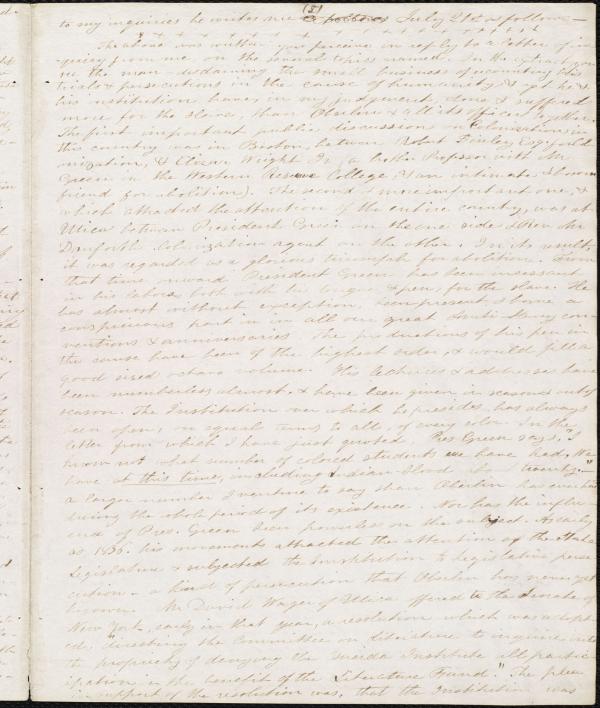 (5)
to my inquiries he writes me July 21st as follows—
The above was written you perceive in reply to a letter of in-
quiry from me, on the several topics named. In the extract you
see the man — disdaining the small business of recounting his
trials & persecutions in the cause of humanity, & yet he &
his institution have, in my judgement, done & suffered
more for the slave, than Oberlin & all its officers together.
The first important public discussion on Colonization in
this country was in Boston, between Robt Finley, Esq, for Colo-
nization, & Elizur Wright Jr. (a brother Professor with Mr
Green in the Western Reserve College & an intimate & bosom
friend for abolition). The second & more important one, &
which attracted the attention of the entire country, was at
Utica between President Green on the one side & Rev. Mr
Danforth Colonization agent on the other. In its results
it was regarded as a glorious triumph for abolition. From
that time onward President Green has been incessant
in his labors, both with his tongue & pen, for the slave. He
has almost without exception, been present & borne a
conspicuous part in in all our great Anti Slavery con-
ventions & anniversaries. The productions of his pen in
the cause have been of the highest order, & would fill a
good sized octavo volume. His lectures & addresses have
been numberless almost, & have been given in season & out of
season. The Institution over which he presides, has always
been open, on equal terms to all, of every color. In the
letter from which I have just quoted, Pres Green says, "I
know not what number of colored students we have had. We
have at this time, including Indian blood
a larger number I venture to say than Oberlin has ever had
during the whole period of its existence. Nor has the influ-
ence of Pres. Green been powerless on the subject. As early
as 1836. his movements attracted the attention of the State
Legislature & subjected the Institution to legislative perse-
cution — a kind of persecution that Oberlin has never yet
known. Mr David Wager of Utica offered to the Senate of
New York, early in that year, a resolution which was adopt-
ed, "directing the Committee on literature to inquire into
the propriety of denying the Oneida Institute all partic-
ipation in the benefit of the Literature Fund." The plea
in support of the resolution was, that the Institution was